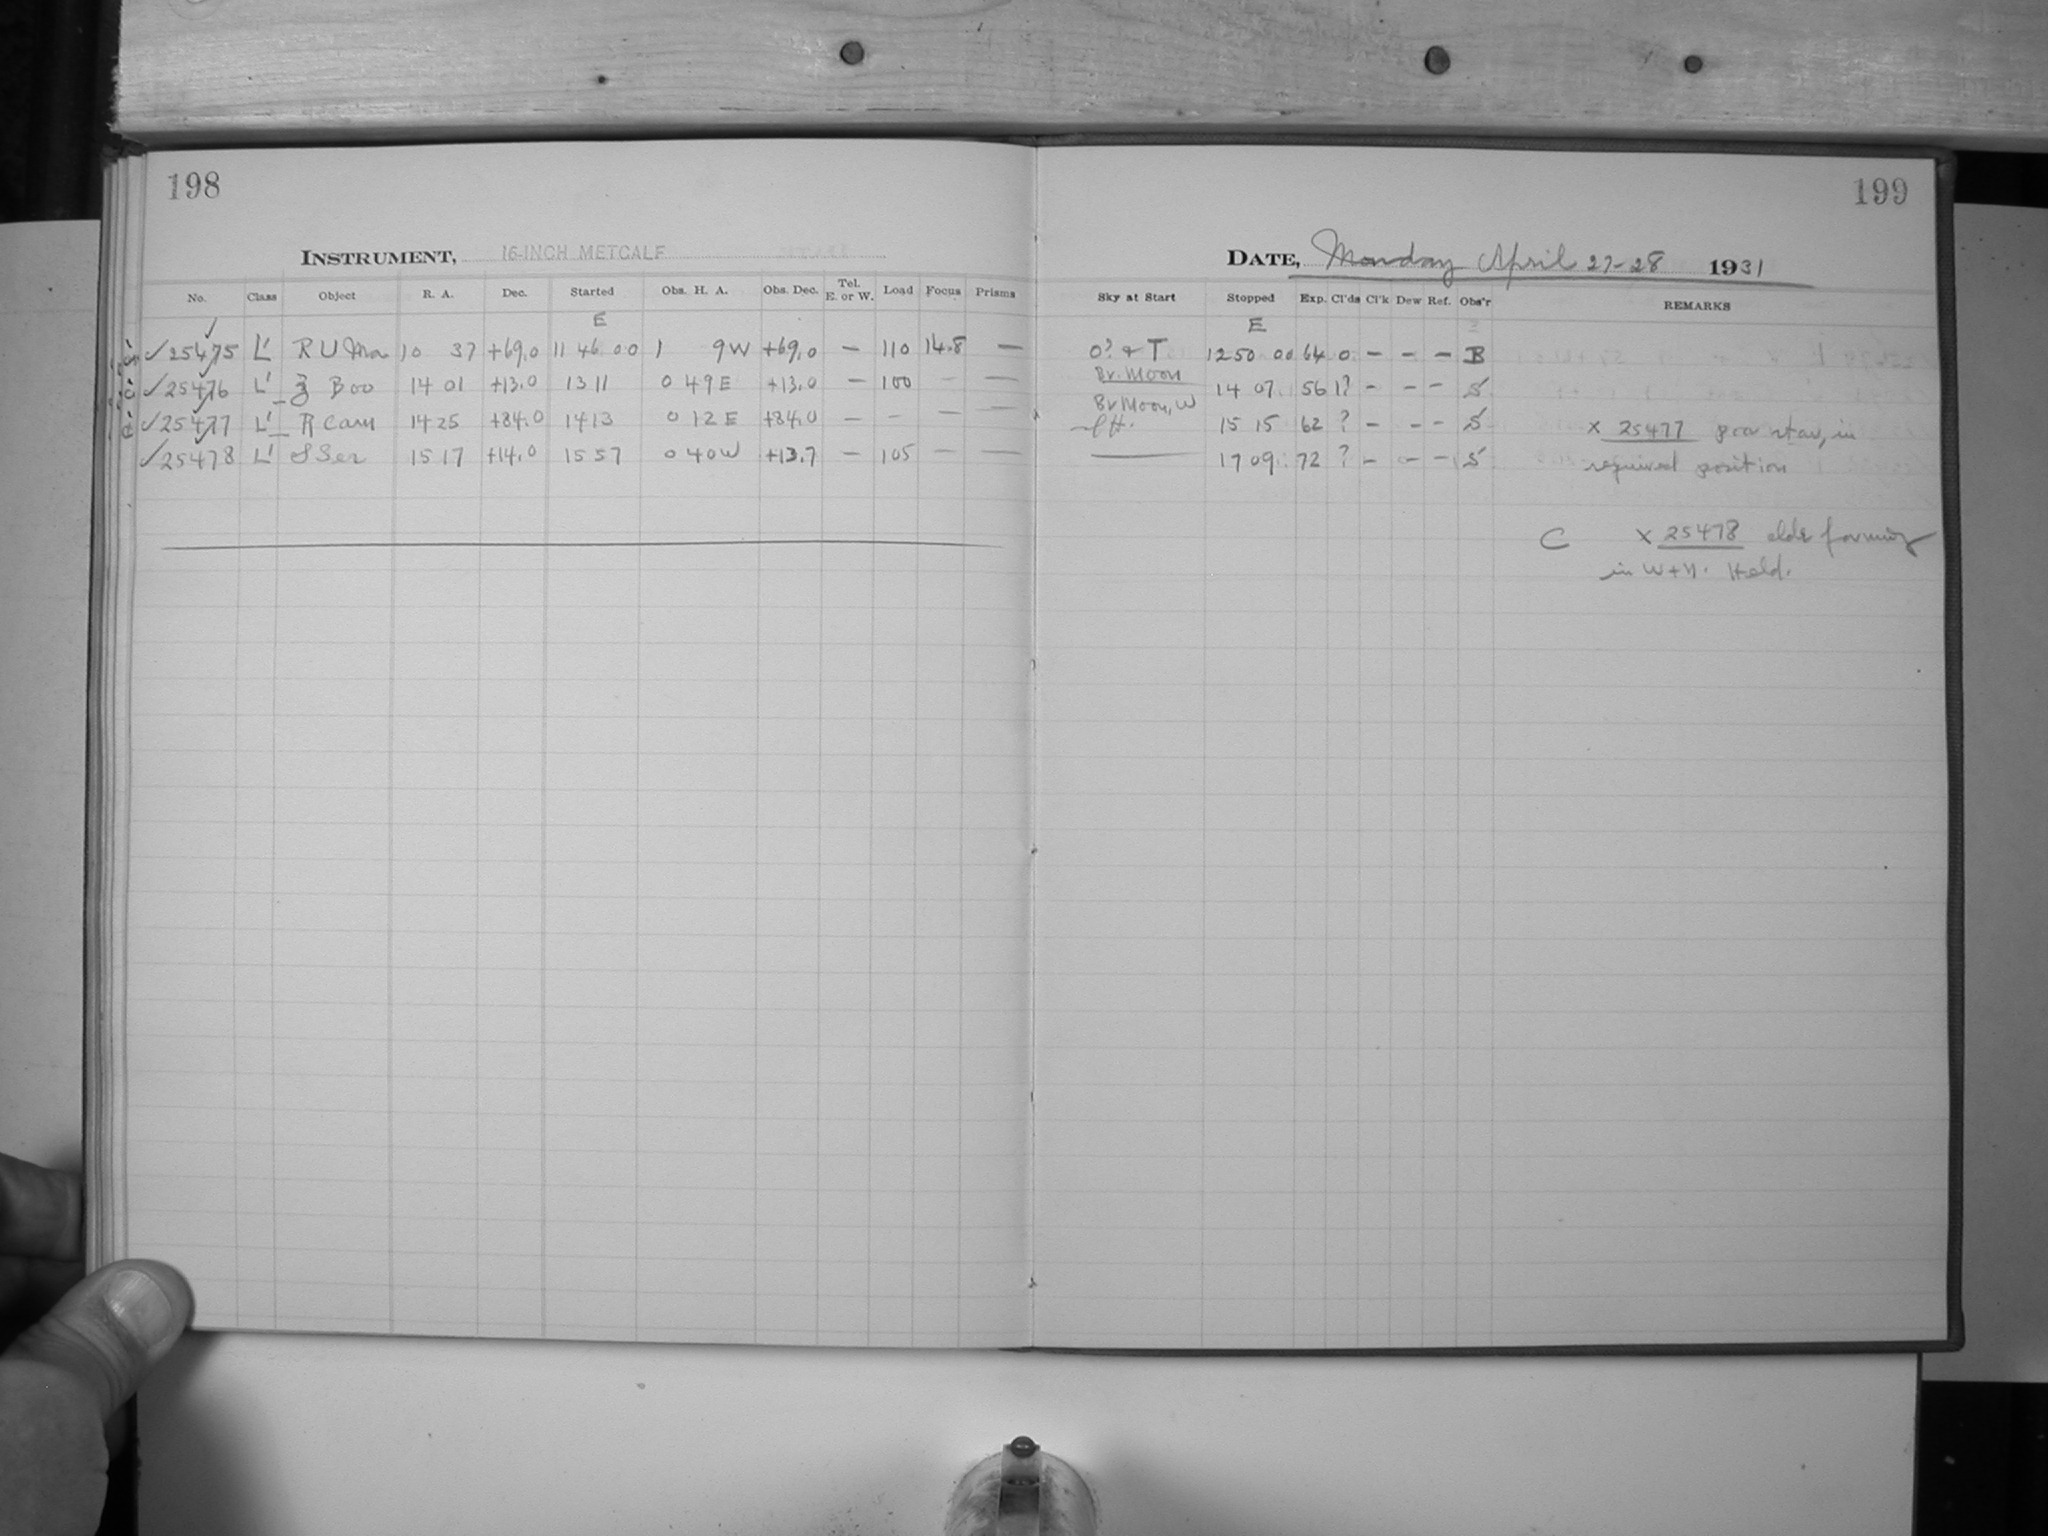 198
INSTRUMENT, 16-INCH METCALF
No. Class Object R. A. Dec. Started Obs. H. A. Obs. Dec. Tel. E. or W. Load Focus Prisms
E
✓25475 L' R U Ma 10 37 +69.0 11 46 00 1 9W +69.0 — 110 14.8 —
✓25476 L' Boo 14 01 +13.0 13 11 0 49E +13.0 — 100 — —
✓25477 L' R Cam 14 25 +84.0 14 13 0 12 E +84.0 — — — —
✓25478 L' S Ser 15 17 +14.0 15 57 0 40W +13.7 — 105 —
199
DATE, Monday April 27-28 1931
Sky at Start Stopped Exp. Cl'ds Cl'k Dew Ref. Obs'r REMARKS
E
0? & T 12 50 00 64 0 — — — B
Br. Moon 14 07 56 1? — — — S
Br Moon, W
15 15 62 ? — — — S x 25477 star, in
17 09 72 ? — — — S required position
C x 25478 clds forming
in W + N. Held.